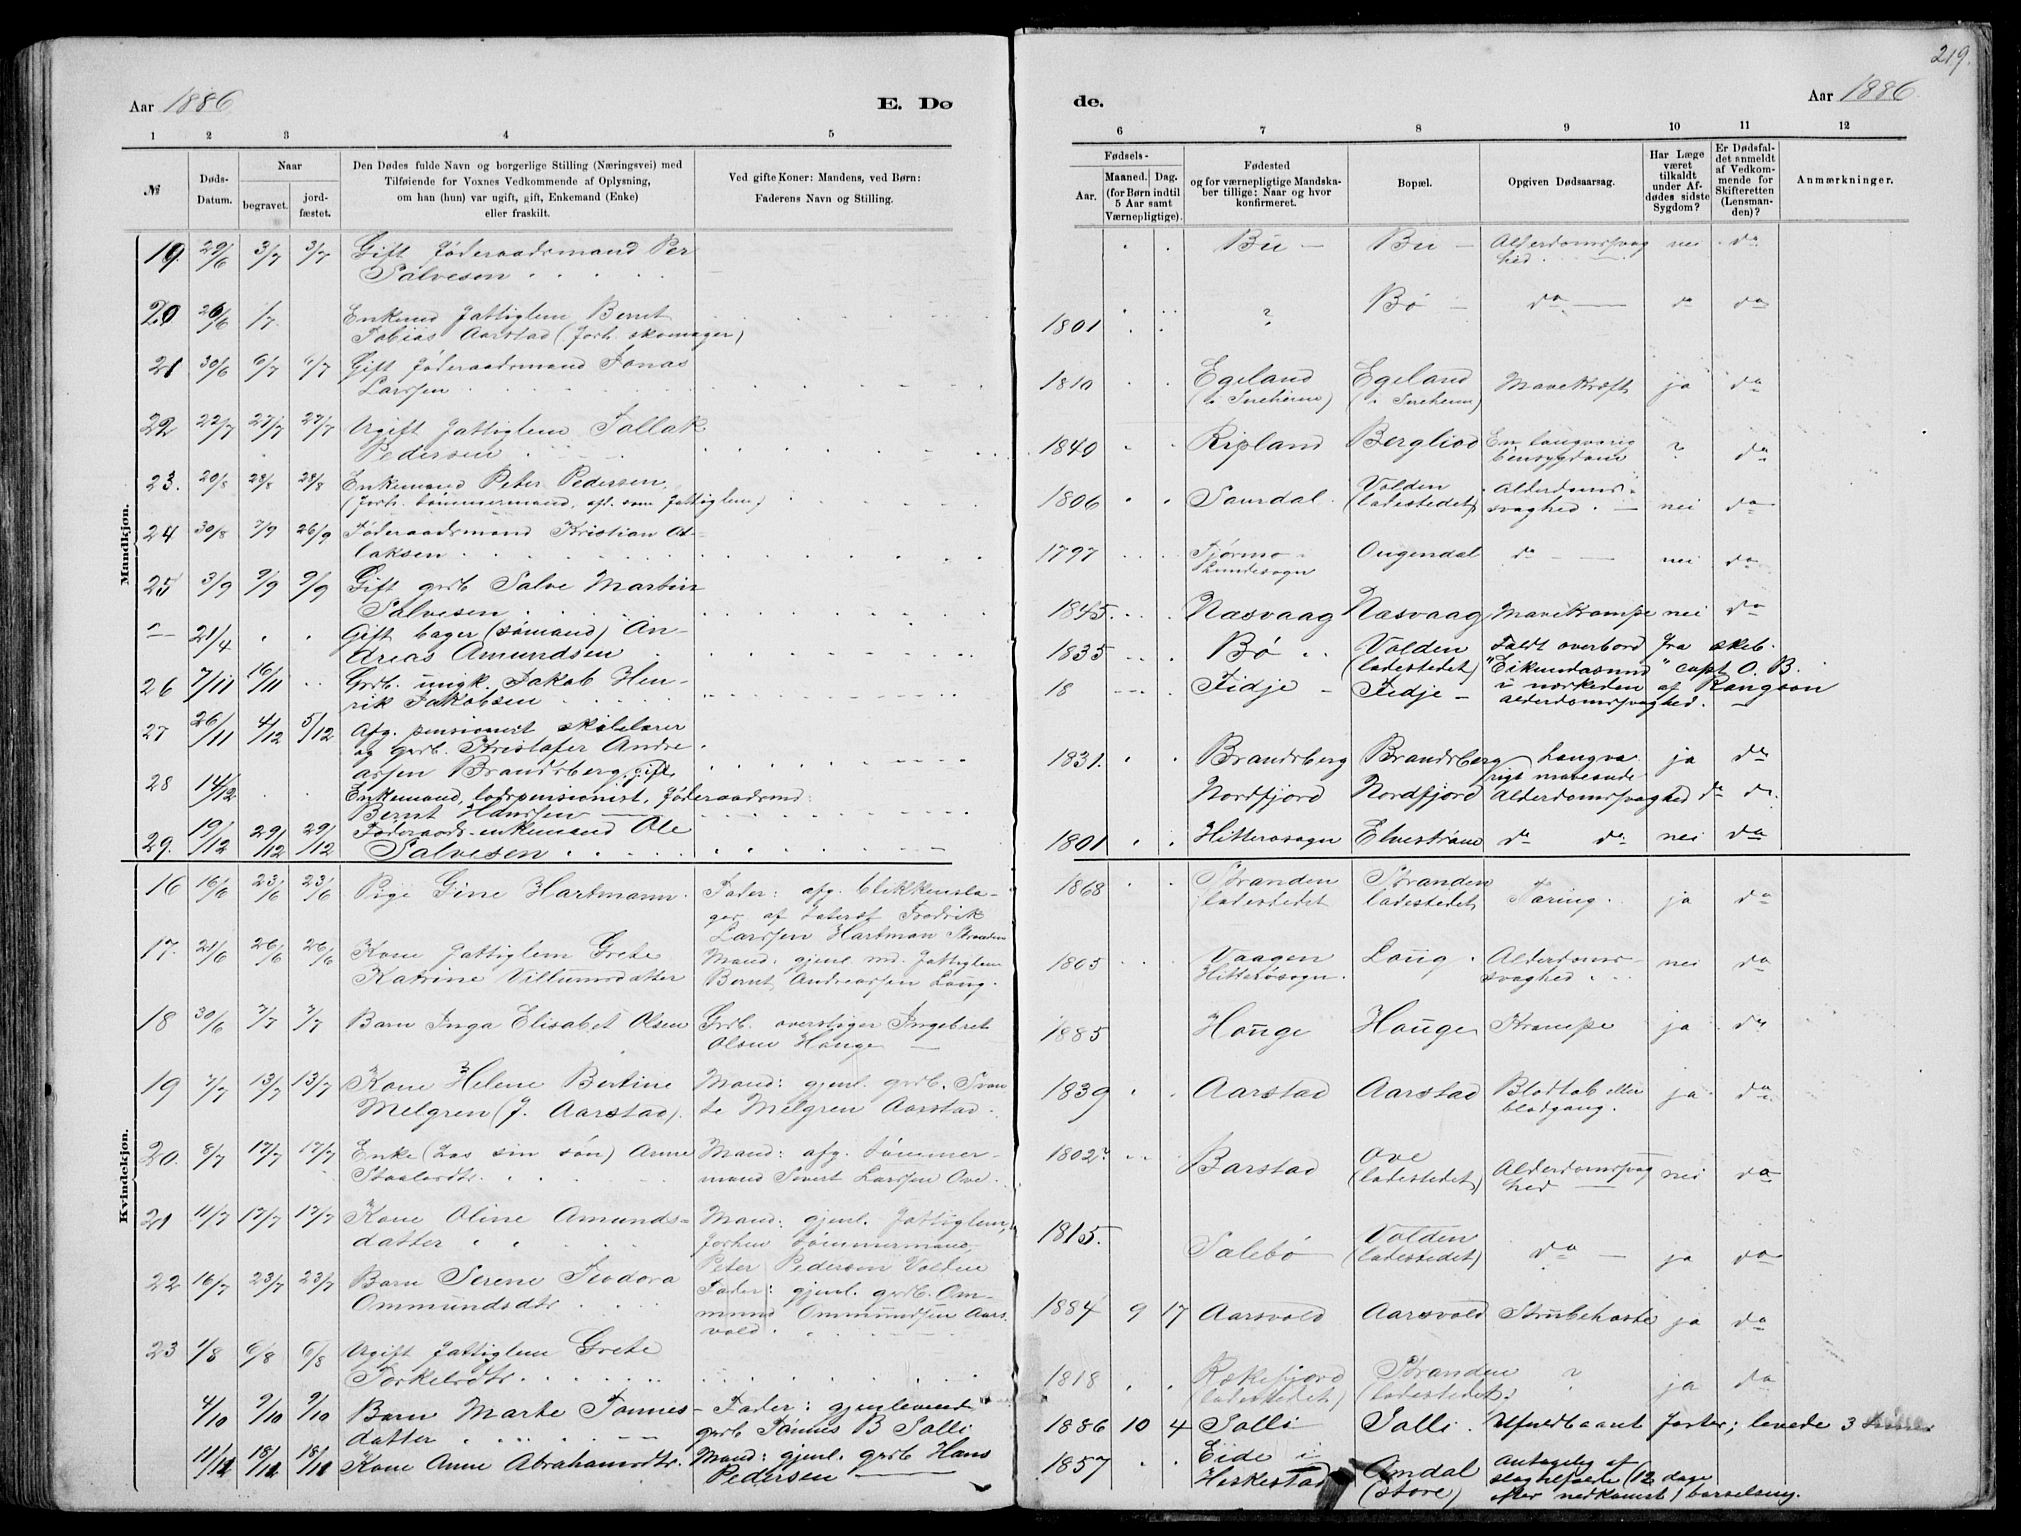 219.
Aar 1886
E. Dø
de.
Aar 1886
1 2 3 4 5 6 7 8 9 10 11 12
№
Døds-
Datum.
Naar
begravet.
jord-
fæstet.
Den Dødes fulde Navn og borgerlige Stilling (Næringsvei) med
Tilføiende for Voxnes Vedkommende af Oplysning,
om han (hun) var ugift, gift, Enkemand (Enke)
eller fraskilt.
Ved gifte Koner: Mandens, ved Børn:
Faderens Navn og Stilling.
Fødsels-
Aar.
Maaned.
Dag.
(for Børn indtil
5 Aar samt
Værnepligtige).
Fødested
og for værnepligtige Mandska-
ber tillige: Naar og hvor
konfirmeret.
Bopæl.
Opgiven Dødsaarsag.
Har Læge
været
tilkaldt
under Af-
dødes sidste
Sygdom?
Er Dødsfal-
det anmeldt
af Vedkom-
mende for
Skifteretten
(Lensman-
den)?
Anmærkninger.
Mandkjøn.
19. 29/6 3/7 3/7 Gift føderaadsmand Per
Salvesen
Bu Bu Alderdomssvag
hed. nei da
20 26/6 1/7 Enkemd fattiglem Bernt
Tobias Aarstad (forh. skomager)
1801 ? Bø da da da
21 30/6 6/7 6/7 Gift føderaadsmand Jonas
Larssen
1810 Egeland Egeland Mavekræft ja da
22 22/7 27/7 27/7 Ugift fattiglem Tollak
Pedersen
1840 Ripland Bergliod En langvarig
bensygdom ? da
23. 20/8 28/8 28/8 Enkemand Peter Pedersen
(forh. tømmermand, afl. som fattiglem)
1806 Saurdal Valden
(ladestedet) Alderdoms-
svaghed. nei da
24 30/8 7/9 26/9 Føderaadsmand Kristian As-
laksen
1797 Lundesogn Ougendal da nei da
25 3/9 9/9 9/9 Gift grdb Salve Martin
Salvesen
1845 Næsvaag Næsvaag Mavekrampe nei da
21/4 Gift bager (sømand) An-
dreas Amundsen
1835 Bø Valden
(ladestedet) Faldt overbord fra skib.
"Eikundasund" capt O. B.
26 7/11 16/11 Grdb. ungk. Jakob Hen-
rik Jakobsen
18 Fidje Fidje
alderdomssvaghed.
27 26/11 4/12 5/12 Afg. pensionert skolelærer
og grdb. Kristofer Andre
assen Brandsberg, gift.
1831. Brandsberg Brandsberg Langva
rigt maveonde ja da
28 14/12 Enkemand, lodspensionist, føderaadsmd:
Bernt Hanssen
Nordfjord Nordfjord Alderdomssvaghed da da
29. 19/12 29/12 29/12 Føderaads-enkemand Ole
Salvesen
1801 Hitterøsogn Elvestrøm da da nei da
Kvindekjøn.
16 16/6 23/6 23/6 Pige Gine Hartmann.
Fader: afg. blikkensla-
ger af Fredrik
Larssen Hartman Stranden
1868 Stranden
ladestedet Stranden
ladestedet Tæring. ja da
17. 21/6 26/6 26/6 Kone fattiglem Grete
Katrine Villumsdatter
Mand: gjenl. md. fattiglem
Bernt Andreassen Laug.
1805 Vaagen
Hitterøsogn. Laug. Alderdoms-
svaghed nei da
18 30/6 7/7 7/7 Barn Inga Elisabet Olsen
Grdb. overstiger Ingebret
Olsen Hauge
1885 Hauge Hauge Krampe ja da
19 7/7 13/7 13/7 Kone Helene Bertine
Melgren (f. Aarstad).
Mand: gjenl. grdb. Svan-
te Melgren Aarstad.
1839 Aarstad Aarstad Blodtab eller
blodgang. ja da
20. 8/7 17/7 17/7 Enke (hos sin søn) Anne
Staalesdtr.
Mand: afg. tømmer-
mand Sivert Larssen Ove.
1802? Barstad Ove
(ladestedet) Alderdomssvag
hed nei da
21 11/7 17/7 17/7 Kone Oline Amunds-
datter
Mand: gjenl. fattiglem,
forhen tømmermand,
Peter Pedersen Valden
1815. Salebø Valden
(ladestedet) da ja da
22 16/7 23/7 23/7 Barn Serene Teodora
Ommundsdtr.
Fader: gjenl. grdb. Om-
mund Ommundsen Aars-
vold.
1884 9 17 Aarsvold Aarsvold Strubehoste ja da
23 1/8 6/8 6/8 Ugift fattiglem Grete
Torkelsdtr.
1818 Rækefjord
(ladestedet) Stranden
(ladestedet) ? ja da
4/10 9/10 9/10 Barn Marte Tonnes-
datter
Fader: gjenlevend
grdb Tønnes B Salli
1886 10 4 Salli Salli. Ufuldbaant foster; levede 3
11/11 18/11 18/11 Kone Anne Abrahamsdtr.
Mand: gjenl. grdb Hans
Pedersen
1857 Eide i
Heskestad Amdal
(store) Antagelig af
slagtilfælde (12 dage
efter nedkomst) barselseng.